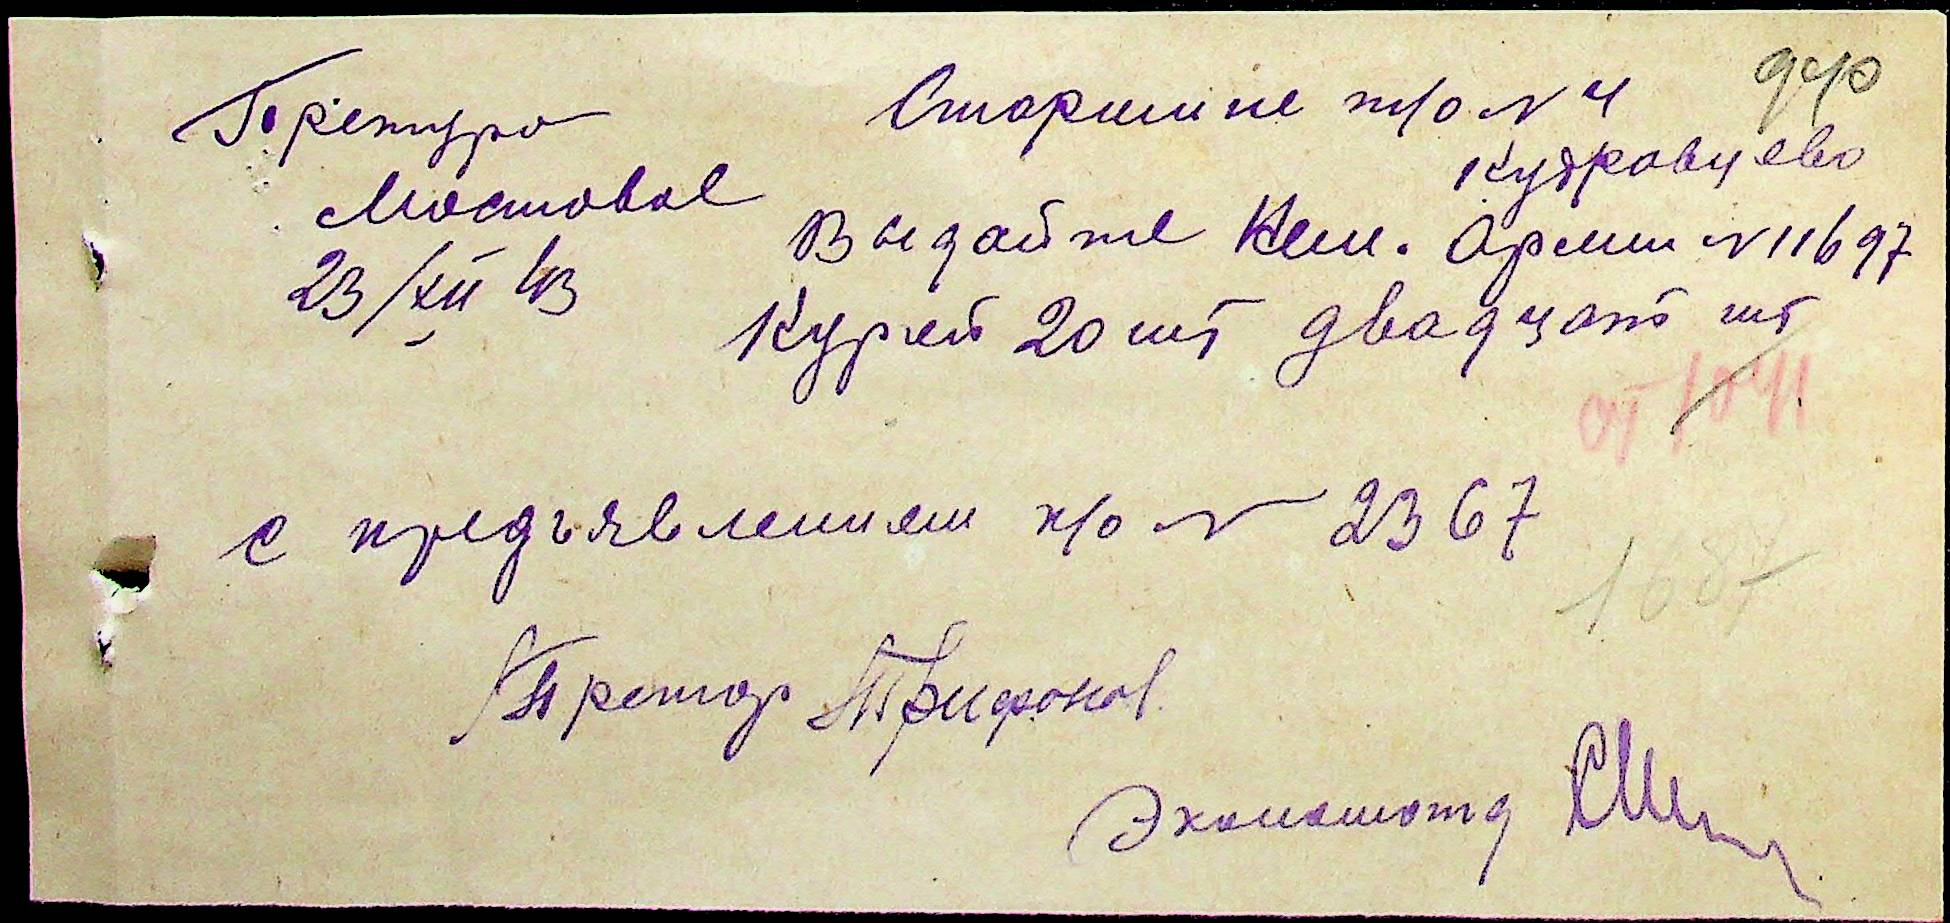 Претура
Мостовое
23/XII 43
Старшине т/о № 4
Кудрявцево
Выдайте Нем. Армии № 11697
Курей 20 шт двадцать шт
от
с предъявлением н/о № 2367
1687
Претор Трифонов
Экономотд